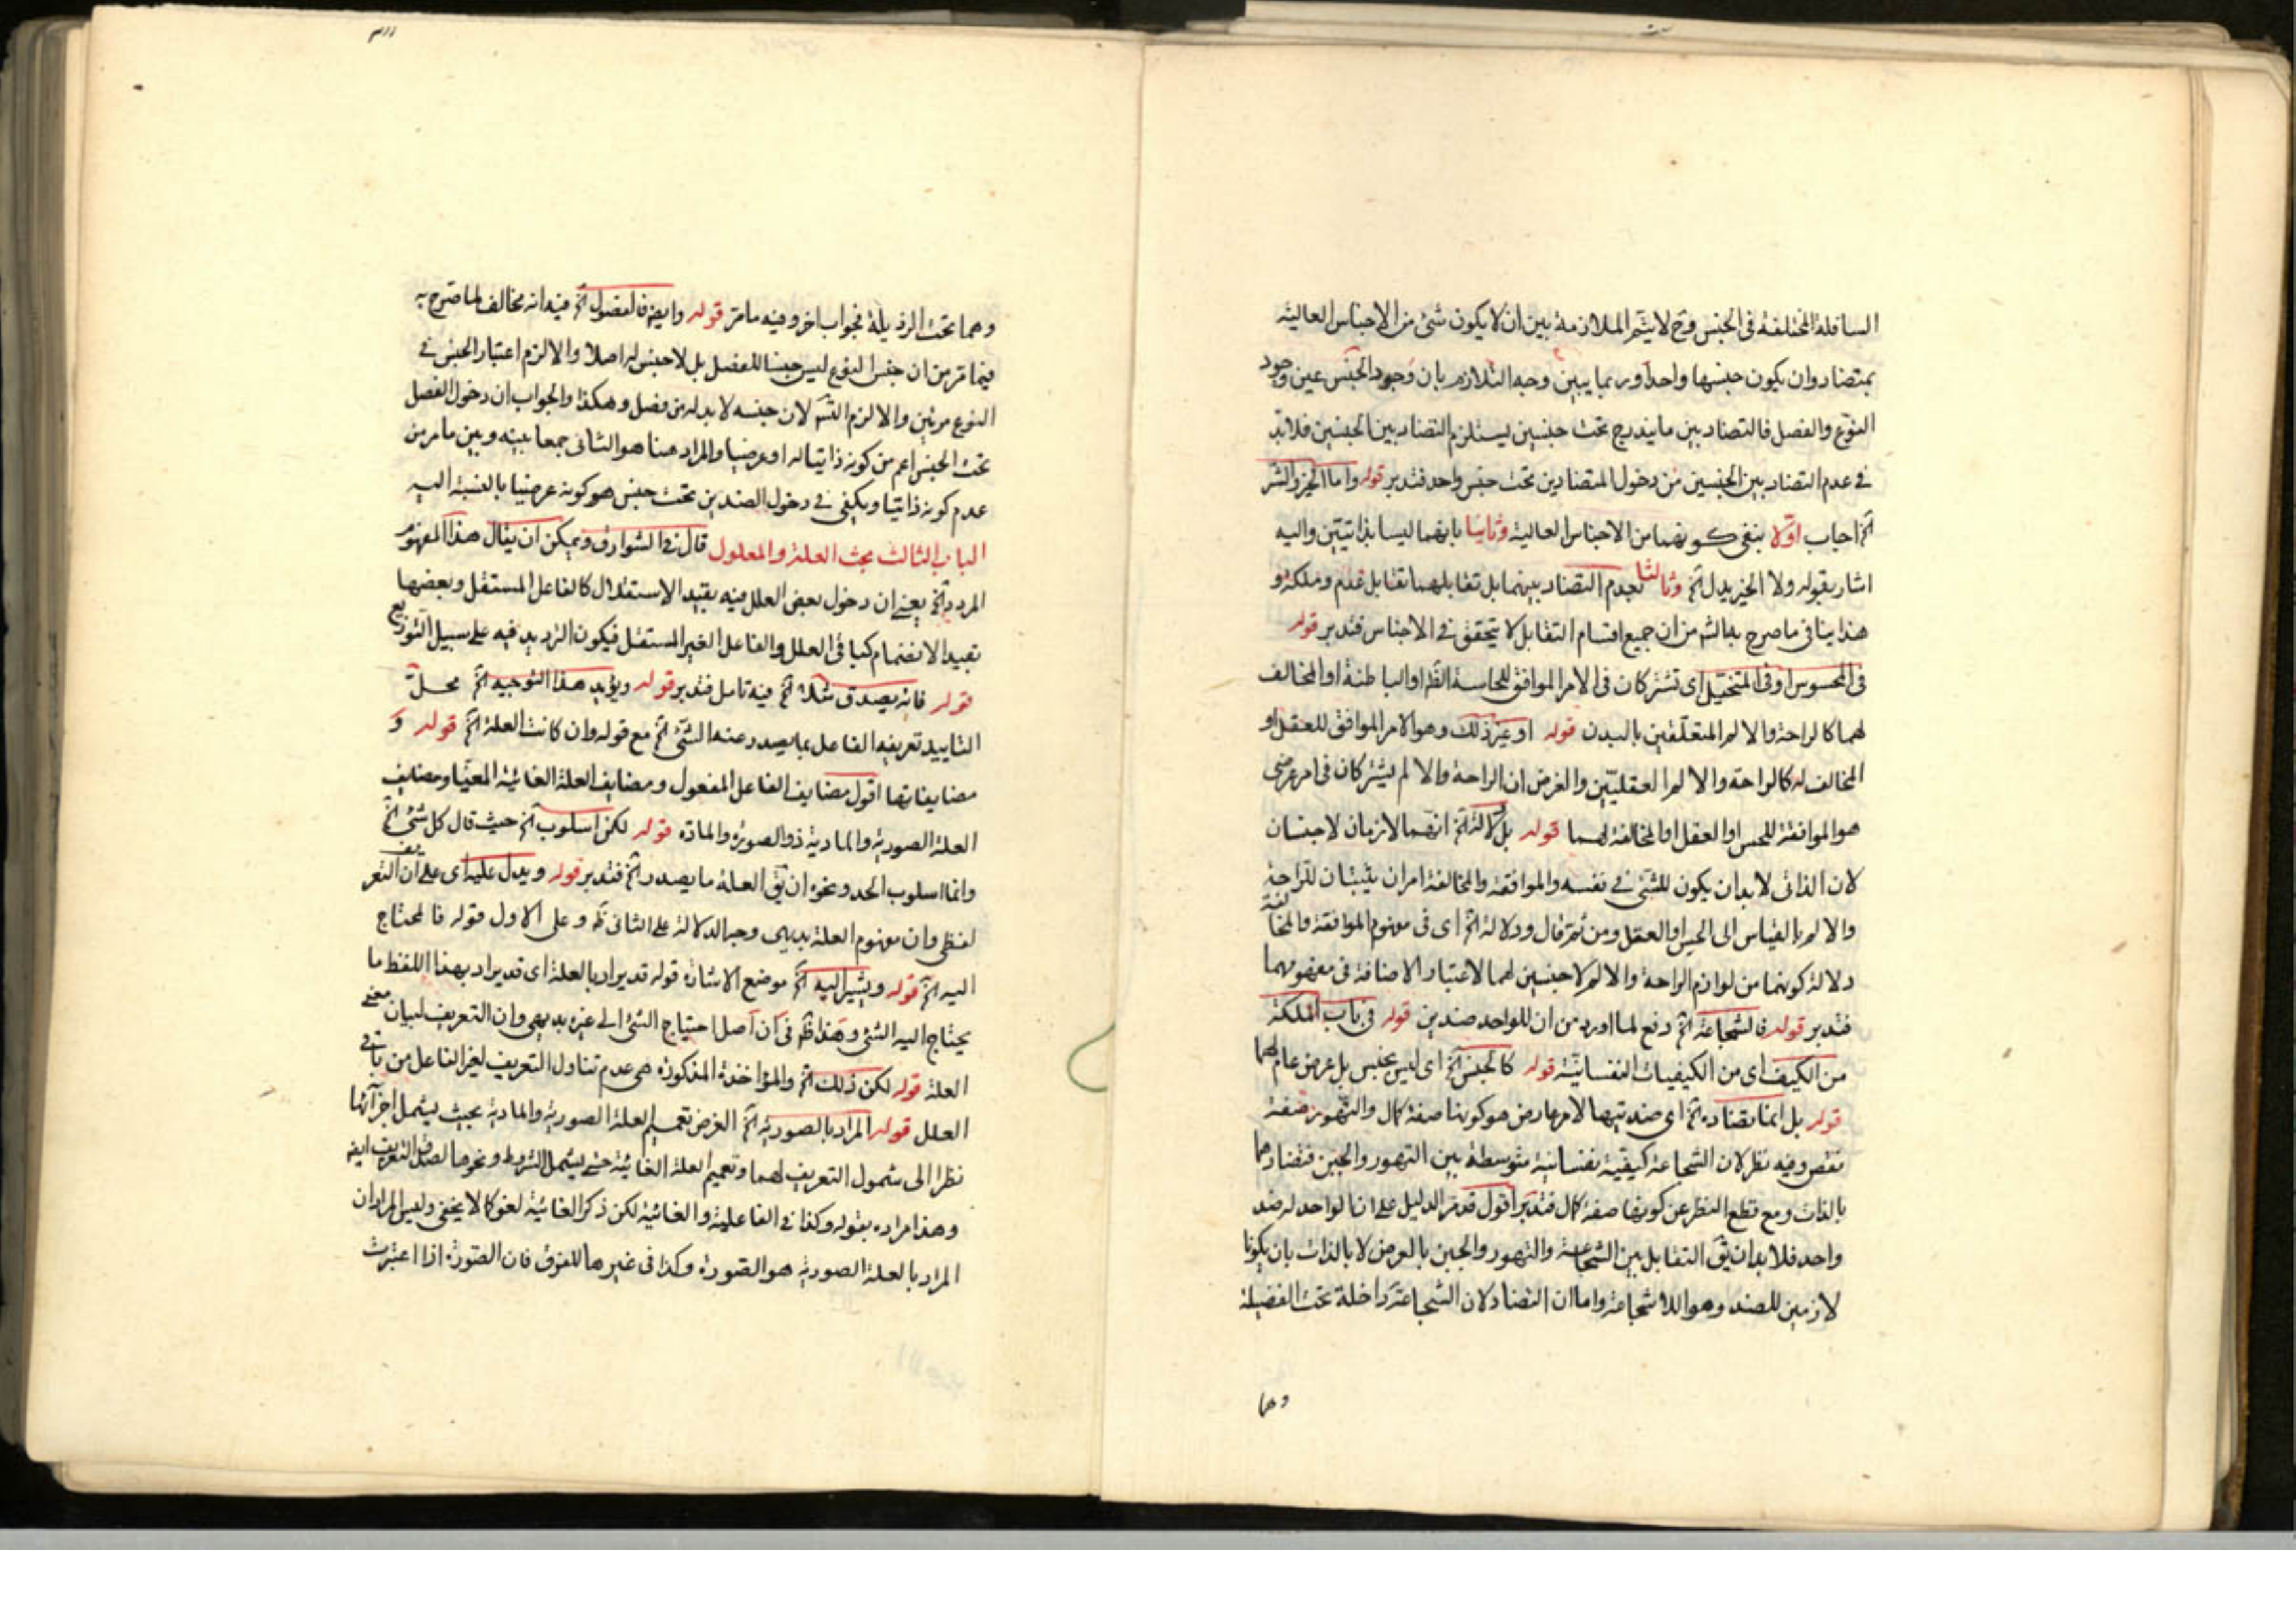 السافلة المختلفة فى الجنس وح لا يتم الملازمة بين ان لا يكون شئ من الاجناس العالية
بمتضاد وان يكون جنسها واحدا وربما يبين وجه التلازم بان وجود الجنس عين وجود
النوع والفصل فالتضاد بين ما يندرج تحت جنسين يستلزم التضاد بين الجنسين فلابد
فى عدم التضاد بين الجنسين من دخول المتضادين تحت جنس واحد فتدبر قوله واما الخير والشر
الخ اجاب اولا بنفى كونهما من الاجناس العالية وثانيا بانهما ليسا بذاتيتين واليه
اشار بقوله ولا الخير يدل الخ وثالثا بعدم التضاد بينهما بل تقابلهما تقابل عدم وملكة و
هذا ينافى ما صرح به من ان جميع اقسام التقابل لا يتحقق فى الاجناس فتدبر قوله
فى المحسوس او فى المتخيل اى تشتركان فى الامر الموافق للحاسة الظ او الباطنة او المخالف
لهما كالراحة والالم المتعلقين بالبدن قوله او غير ذلك وهو الامر الموافق للعقل او
المخالف له كالراحة والالم العقليتين والغرض ان الراحة والالم يشتركان فى امر عرضى
هو الموافقة للحس او العقل او المخالفة لهما قوله بل دلالة الخ انهما لازمان لا جنسان
لان الذاتى لابد ان يكون للشئ فى نفسه والموافقة والمخالفة امران يثبتان للراحة
والالم بالقياس الى الحس او العقل ومن ثم قال ودلالة الخ اى فى مفهوم الموافقة والمخالفة
دلالة كونهما من لوازم الراحة والالم لا جنسين لهما لاعتبار الاضافة فى مفهومهما
فتدبر قوله فالشجاعة الخ دفع لما اورد من ان للواحد ضدين قوله فى باب الملكة
من الكيف اى من الكيفيات النفسانية قوله كالجنس الخ اى ليس بجنس بل عرض عام لهما
قوله بل انما تضاده الخ اى ضديتها لامر عارض هو كونها صفة كمال والتهور صفة
نقص وفيه نظر لان الشجاعة كيفية نفسانية متوسطة بين التهور والجبن فتضادهما
بالذات ومع قطع النظر عن كونها صفة كمال فتدبر اقول قد مر الدليل على ان الواحد له ضد
واحد فلابد ان يق التقابل بين الشجاعة والتهور والجبن بالعرض لا بالذات بان يكونا
لازمين للضد وهو اللاشجاعة واما ان التضاد لان الشجاعة داخلة تحت الفضيلة
وهما
وهما تحت الرذيلة فجواب اخر وفيه ما مر قوله وايضا فالفصول الخ فيه انه مخالف لما صرح به
فيما مر من ان جنس النوع ليس جنسا للفصل بل لا جنس له اصلا والا لزم اعتبار الجنس فى
النوع مرتين والا لزم التس لان جنسه لابد له من فصل وهكذا والجواب ان دخول الفصل
تحت الجنس اعم من كونه ذاتيا له او عرضيا والمراد هنا هو الثانى جمعا بينه وبين ما مر من
عدم كونه ذاتيا ويكفى فى دخول الضدين تحت جنس هو كونه عرضيا بالنسبة اليه
الباب الثالث بحث العلة والمعلول قال فى الشوارق ويمكن ان يقال هذا المفهوم
المردد الخ يعنى ان دخول بعض العلل فيه بقيد الاستقلال كالفاعل المستقل وبعضها
بقيد الانضمام كباقى العلل والفاعل الغير المستقل فيكون الترديد فيه على سبيل التوزيع
قوله فانه يصدق مثلا الخ فيه تامل فتدبر قوله ويؤيد هذا التوجيه الخ محل
التاييد تعريفه الفاعل بما يصدر عنه الشئ الخ مع قوله وان كانت العلة الخ قوله و
مضايفاتها اقول مضايف الفاعل المفعول ومضايف العلة الغائية المغيا ومضايف
العلة الصورية والمادية ذو الصورة والمادة قوله لكن اسلوب الخ حيث قال كل شئ الخ
وانما اسلوب الحد ونحوه ان يق العلة ما يصدر الخ فتدبر قوله ويدل عليه اى على ان التعريف
لفظى وان مفهوم العلة بديهى وجه الدلالة على الثانى ظ وعلى الاول قوله فالمحتاج
اليه الخ قوله ويشير اليه الخ موضع الاشارة قوله قد يراد بالعلة اى قد يراد بهذا اللفظ ما
يحتاج اليه الشئ وهذا ظ فى ان اصل احتياج الشئ الى غيره بديهى وان التعريف لبيان معنى
العلة قوله لكن ذلك الخ والمؤاخذة المذكورة هى عدم تناول التعريف لغير الفاعل من باقى
العلل قوله المراد بالصورية الخ الغرض تعميم العلة الصورية والمادية بحيث يشمل اجزائها
نظرا الى شمول التعريف لهما وتعميم العلة الغائية حتى يشمل الشروط ونحوها لصدق التعريف ايضا
وهذا مراده بقوله وكذا فى الفاعلية والغائية لكن ذكر الغائية لغو كما لا يخفى وليس المراد ان
المراد بالعلة الصورية هو الصورة وكذا فى غيرها للفرق فان الصورة اذا اعتبرت